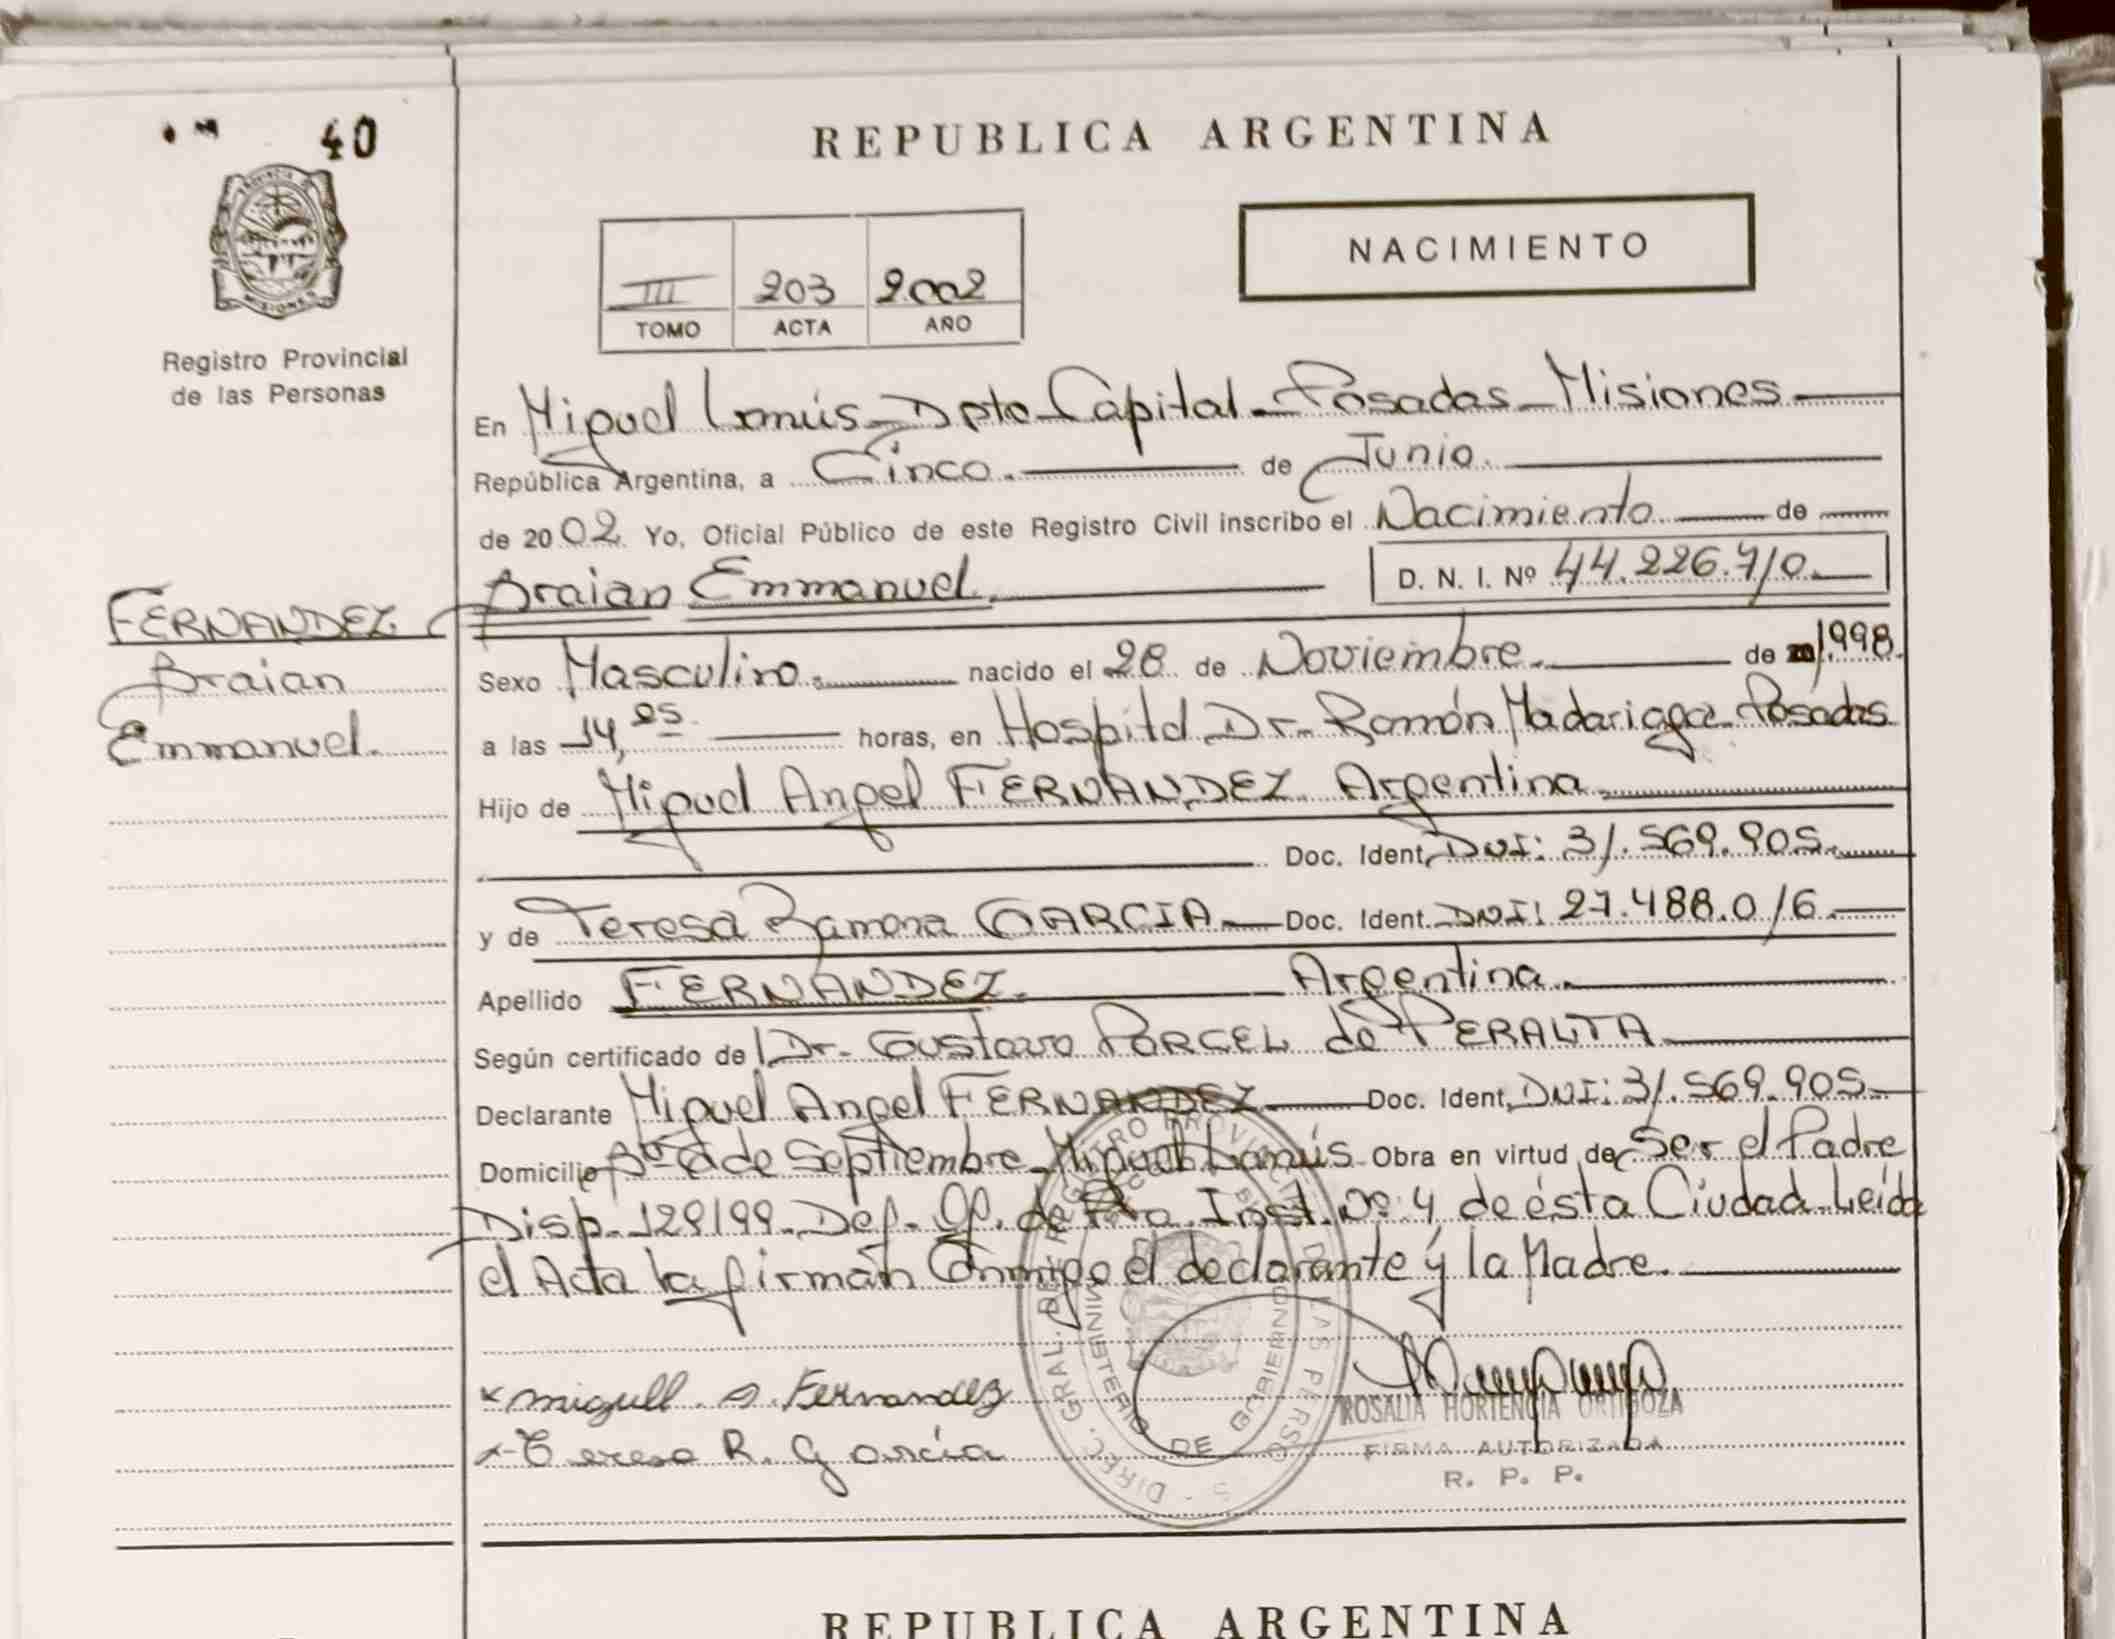 40
REPUBLICA ARGENTINA
PROVINCIA DE
MISIONES
Registro Provincial
de las Personas
III 203 2002
TOMO ACTA AÑO
NACIMIENTO
En Miguel Lanús - Dpto Capital - Posadas - Misiones
República Argentina, a Cinco. de Junio.
de 2002. Yo, Oficial Público de este Registro Civil inscribo el Nacimiento de
Braian Emmanuel. D. N. I. Nº 44.226.710.
FERNANDEZ
Braian
Emmanuel.
Sexo Masculino. nacido el 28 de Noviembre. de 1998.
a las 14,05 horas, en Hospital Dr. Ramón Madariaga - Posadas
Hijo de Miguel Angel FERNANDEZ. Argentina.
Doc. Ident. DNI: 31.569.905.
y de Teresa Ramona GARCIA Doc. Ident. DNI: 27.488.016.
Apellido FERNANDEZ. Argentina.
Según certificado de Dr. Gustavo PORCEL de PERALTA
Declarante Miguel Angel FERNANDEZ Doc. Ident. DNI: 31.569.905.
Domicilio Bº de Septiembre - Miguel Lanús. Obra en virtud de Ser el Padre
Disp. 129/99. Def. Of. de Inst. Nº 4, de ésta Ciudad. Leída
el Acta la firman Conmigo el declarante y la Madre.
x miguell. A. Fernandez
x Teresa R. Garcia
DIREC. GRAL. DE REGISTRO PROVINCIAL DE LAS PERSONAS
MINISTERIO DE GOBIERNO
ROSALIA HORTENCIA ORTIGOZA
FIRMA AUTORIZADA
R. P. P.
REPUBLICA ARGENTINA